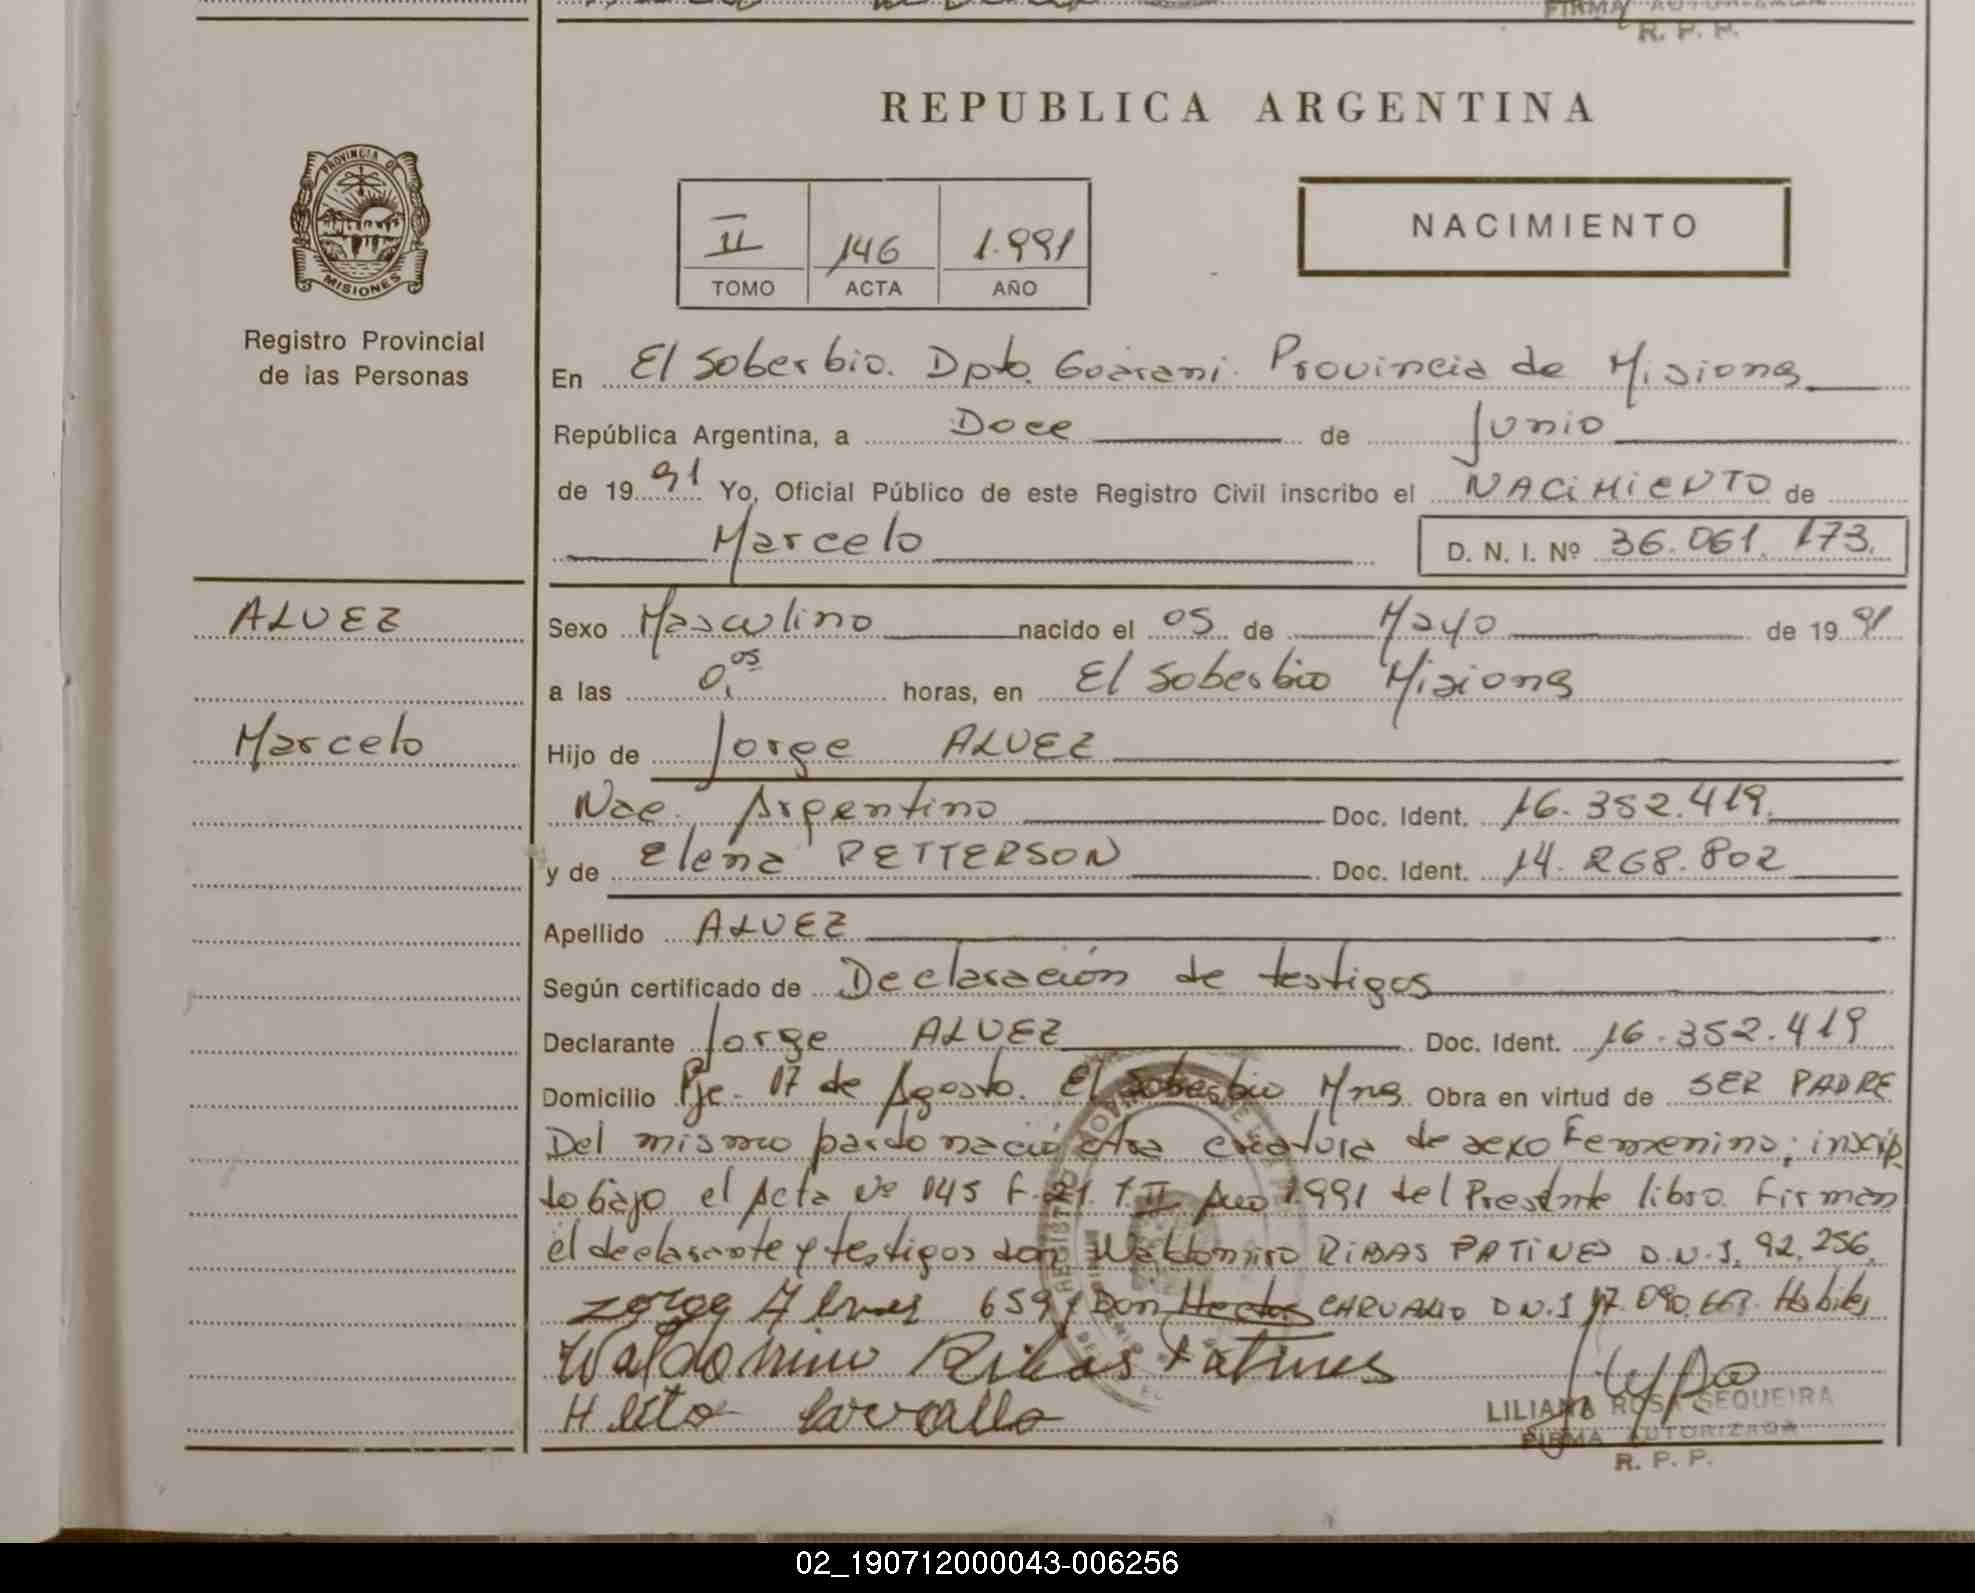 FIRMA AUTORIZADA
R. P. P.
REPUBLICA ARGENTINA
PROVINCIA DE MISIONES
Registro Provincial
de las Personas
NACIMIENTO
II 146 1.991
TOMO ACTA AÑO
En El Soberbio. Dpto. Guarani. Provincia de Misiones
República Argentina, a Doce de Junio
de 19 91 Yo, Oficial Público de este Registro Civil inscribo el NACIMIENTO de
Marcelo D. N. I. Nº 36.061.173.
ALVEZ
Marcelo
Sexo Masculino nacido el 05 de Mayo de 19 91
a las 0,05 horas, en El Soberbio Misiones
Hijo de Jorge ALVEZ
Nac. Argentino Doc. Ident. 16.352.419.
y de Elena PETTERSON Doc. Ident. 14.268.802
Apellido ALVEZ
Según certificado de Declaración de testigos
Declarante Jorge ALVEZ Doc. Ident. 16.352.419
Domicilio Pje. 17 de Agosto. El Soberbio Mnes Obra en virtud de SER PADRE
Del mismo parto nació otra creatura de sexo Femenino; inscrip
to bajo el Acta Nº 145 F. 21. T. II Año 1.991 del Presente libro. Firman
el declarante y testigos don Waldomiro RIBAS PATINES D.N.I. 92.256.
659 y Don Hector CARVALLO D.N.I 17.090.663. Habiles
Waldomiro Ribas Patines
LILIANA ROSA SEQUEIRA
FIRMA AUTORIZADA
R. P. P.
02_190712000043-006256